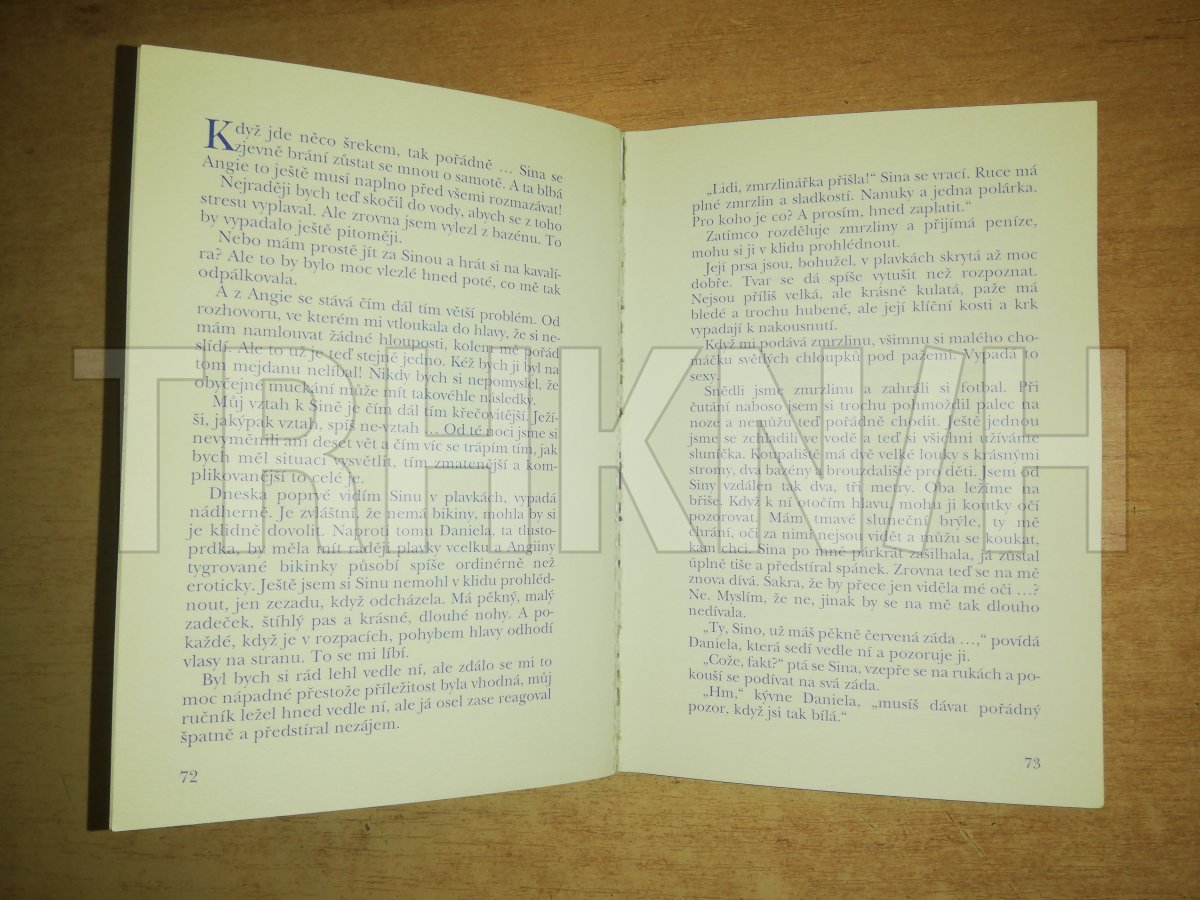 Když jde něco šrekem, tak pořádně ... Sina se
zjevně brání zůstat se mnou o samotě. A ta blbá
Angie to ještě musí naplno před všemi rozmazávat!
Nejraději bych teď skočil do vody, abych se z toho
stresu vyplaval. Ale zrovna jsem vylezl z bazénu. To
by vypadalo ještě pitoměji.
Nebo mám prostě jít za Sinou a hrát si na kavalí-
ra? Ale to by bylo moc vlezlé hned poté, co mě tak
odpálkovala.
A z Angie se stává čím dál tím větší problém. Od
rozhovoru, ve kterém mi vtloukala do hlavy, že si ne-
mám namlouvat žádné hlouposti, kolem mě pořád
slídí. Ale to už je teď stejně jedno. Kéž bych ji byl na
tom mejdanu nelíbal! Nikdy bych si nepomyslel, že
obyčejné muckání může mít takovéhle následky.
Můj vztah k Sině je čím dál tím křečovitější. Ježí-
ši, jakýpak vztah, spíš ne-vztah ... Od té noci jsme si
nevyměnili ani deset vět a čím víc se trápím tím, jak
bych měl situaci vysvětlit, tím zmatenější a kom-
plikovanější to celé je.
Dneska poprvé vidím Sinu v plavkách, vypadá
nádherně. Je zvláštní, že nemá bikiny, mohla by si
je klidně dovolit. Naproti tomu Daniela, ta tlusto-
prdka, by měla mít raději plavky vcelku a Angiiny
tygrované bikinky působí spíše ordinérně než
eroticky. Ještě jsem si Sinu nemohl v klidu prohléd-
nout, jen zezadu, když odcházela. Má pěkný, malý
zadeček, štíhlý pas a krásné, dlouhé nohy. A po-
každé, když je v rozpacích, pohybem hlavy odhodí
vlasy na stranu. To se mi líbí.
Byl bych si rád lehl vedle ní, ale zdálo se mi to
moc nápadné přestože příležitost byla vhodná, můj
ručník ležel hned vedle ní, ale já osel zase reagoval
špatně a předstíral nezájem.
72
„Lidi, zmrzlinářka přišla!“ Sina se vrací. Ruce má
plné zmrzlin a sladkostí. Nanuky a jedna polárka.
Pro koho je co? A prosím, hned zaplatit.“
Zatímco rozděluje zmrzliny a přijímá peníze,
mohu si ji v klidu prohlédnout.
Její prsa jsou, bohužel, v plavkách skrytá až moc
dobře. Tvar se dá spíše vytušit než rozpoznat.
Nejsou příliš velká, ale krásně kulatá, paže má
bledé a trochu hubené, ale její klíční kosti a krk
vypadají k nakousnutí.
Když mi podává zmrzlinu, všimnu si malého cho-
máčku světlých chloupků pod pažemi. Vypadá to
sexy.
Snědli jsme zmrzlinu a zahráli si fotbal. Při
čutání naboso jsem si trochu pohmoždil palec na
noze a nemůžu teď pořádně chodit. Ještě jednou
jsme se zchladili ve vodě a teď si všichni užíváme
sluníčka. Koupaliště má dvě velké louky s krásnými
stromy, dva bazény a brouzdaliště pro děti. Jsem od
Siny vzdálen tak dva, tři metry. Oba ležíme na
břiše. Když k ní otočím hlavu, mohu ji koutky očí
pozorovat. Mám tmavé sluneční brýle, ty mě
chrání, oči za nimi nejsou vidět a můžu se koukat,
kam chci. Sina po mně párkrát zašilhala, já zůstal
úplně tiše a předstíral spánek. Zrovna teď se na mě
znova dívá. Sakra, že by přece jen viděla mé oči ...?
Ne. Myslím, že ne, jinak by se na mě tak dlouho
nedívala.
„Ty, Sino, už máš pěkně červená záda ...,“ povídá
Daniela, která sedí vedle ní a pozoruje ji.
„Cože, fakt?“ ptá se Sina, vzepře se na rukách a po-
kouší se podívat na svá záda.
„Hm,“ kývne Daniela, „musíš dávat pořádný
pozor, když jsi tak bílá.“
73
TRHKNIH